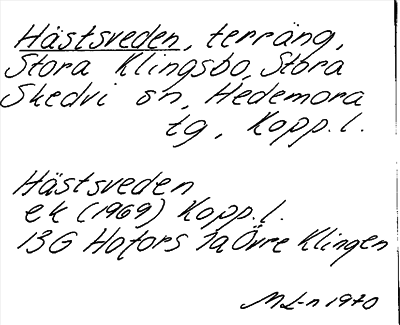 Hästsveden, terräng,
Stora Klingsbo, Stora
Skedvi sn, Hedemora
tg, Kopp.l.
Hästsveden
ek (1969) Kopp.l.
13G Hofors 1a Övre Klingen
M L-n 1970